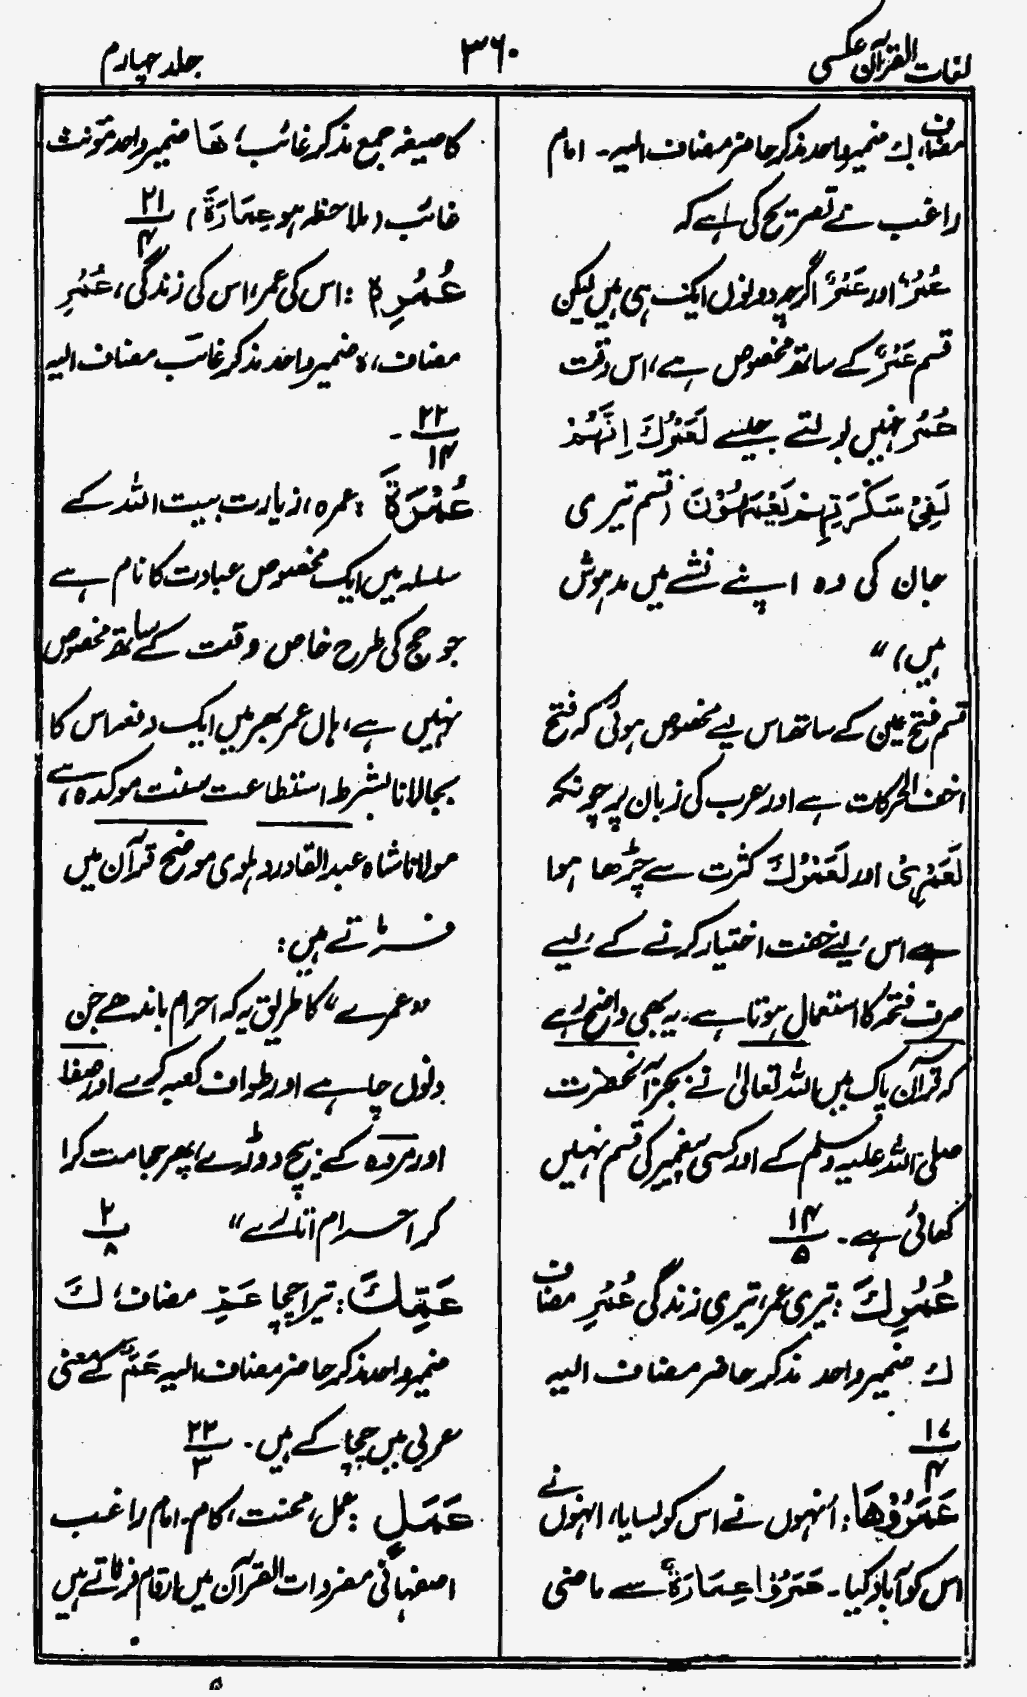 لغات القرآن عکسی
۳۶۰
جلد چہارم
مضاف، ك ضمیر واحد مذکر حاضر مضاف الیہ۔ امام
راغب نے تصریح کی ہے کہ
عُمْرٌ اور عَمْرٌ اگرچہ دونوں ایک ہی ہیں لیکن
قسم عَمْرٌ کے ساتھ مخصوص ہے، اس وقت
عُمْر نہیں بولتے جیسے لَعَمْرُكَ اِنَّهُمْ
لَفِیْ سَكْرَتِهِمْ يَعْمَهُوْنَ (قسم تیری
جان کی وہ اپنے نشے میں مدہوش
ہیں) "
قسم فتح عین کے ساتھ اس لیے مخصوص ہوئی کہ فتح
اخف الحرکات ہے اور عرب کی زبان پر چونکہ
لَعَمْرِیْ اور لَعَمْرُكَ کثرت سے چڑھا ہوا
ہے اس لیے خفت اختیار کرنے کے لیے
صرف فتحہ کا استعمال ہوتا ہے۔ یہ بھی واضح رہے
کہ قرآن پاک میں اللہ تعالیٰ نے بجز آنحضرت
صلی اللہ علیہ وسلم کے اور کسی پیغمبر کی قسم نہیں
کھائی ہے۔ ۱۴/۵
عُمُرِكَ: تیری عمر، تیری زندگی عُمُرِ مضاف
ك ضمیر واحد مذکر حاضر مضاف الیہ
۱۷/۴
عَمَرُوْهَا: اُنہوں نے اس کو بسایا، انہوں نے
اس کو آباد کیا۔ عَمَرُوْا عِمَارَةٌ سے ماضی
کا صیغہ جمع مذکر غائب، ھَا ضمیر واحد مؤنث
غائب (ملاحظہ ہو عِمَارَةَ) ۲۱/۴
عُمُرِهٖ: اس کی عمر، اس کی زندگی، عُمُرِ
مضاف، ہ ضمیر واحد مذکر غائب مضاف الیہ
۲۲/۱۴ ۔
عُمْرَةَ: عمرہ، زیارت بیت اللہ کے
سلسلہ میں ایک مخصوص عبادت کا نام ہے
جو حج کی طرح خاص وقت کے ساتھ مخصوص
نہیں ہے، ہاں عمر بھر میں ایک دفعہ اس کا
بجالانا بشرط استطاعت سنت موکدہ ہے،
مولانا شاہ عبدالقادر دہلوی موضح قرآن میں
فرماتے ہیں:
"عمرے" کا طریق یہ کہ احرام باندھے جن
دنوں چاہے اور طواف کعبہ کرے اور صفا
اور مروہ کے بیچ دوڑے، پھر حجامت کرا
کر احرام اتارے" ۲/۸
عَمِّكَ: تیرا چچا عَمِّ مضاف، كَ
ضمیر واحد مذکر حاضر مضاف الیہ عَمٌّ کے معنی
عربی میں چچا کے ہیں۔ ۲۲/۳
عَمَلٍ: عمل، محنت، کام۔ امام راغب
اصفہانی مفردات القرآن میں ارقام فرماتے ہیں